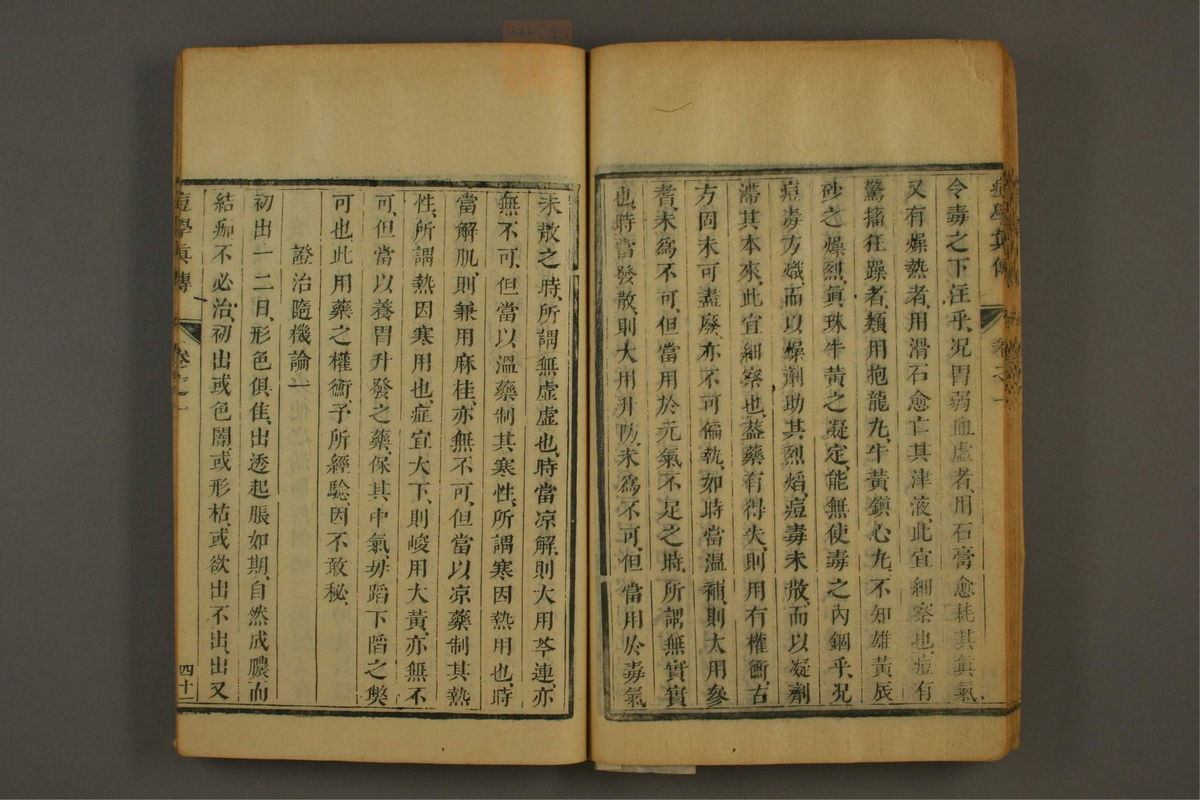 痘學眞傳 卷之一
令毒之下注乎、況胃弱血虛者、用石膏愈耗其眞氣
又有燥熱者、用滑石愈亡其津液、此宜細察也、痘有
驚搐狂躁者、類用抱龍丸、牛黃鎭心丸、不知雄黃辰
砂之燥烈、眞珠牛黃之凝定、能無使毒之內錮乎、況
痘毒方熾、而以燥劑助其烈焰、痘毒未散、而以凝劑
滯其本來、此宜細察也、葢藥有得失、則用有權衡、古
方固未可盡廢、亦不可偏執、如時當温補、則大用參
耆、未爲不可、但當用於元氣不足之時、所謂無實實
也、時當發散、則大用升防、未爲不可、但當用於毒氣
未散之時、所謂無虛虛也、時當凉解、則大用芩連、亦
無不可、但當以溫藥制其寒性、所謂寒因熱用也、時
當解肌、則兼用麻桂、亦無不可、但當以凉藥制其熱
性、所謂熱因寒用也、症宜大下、則峻用大黃、亦無不
可、但當以養胃升發之藥、保其中氣、毋蹈下陷之獘
可也、此用藥之權衡、予所經驗、因不敢秘、
證治隨機論一
初出一二日、形色俱隹、出透起脹如期、自然成膿而
結痂不必治、初出或色闇或形枯、或欲出不出、出又
痘學眞傳 卷之一 四十一